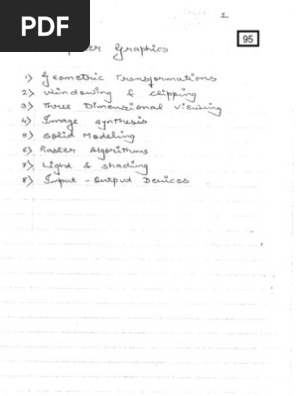 1
PDF
95
Graphics
1) Geometric Transformations
2) Windowing & Clipping
3) Three Dimensional Viewing
4) Image synthesis
5) Solid Modeling
6) Raster Algorithms
7) Light & shading
8) Input - Output Devices